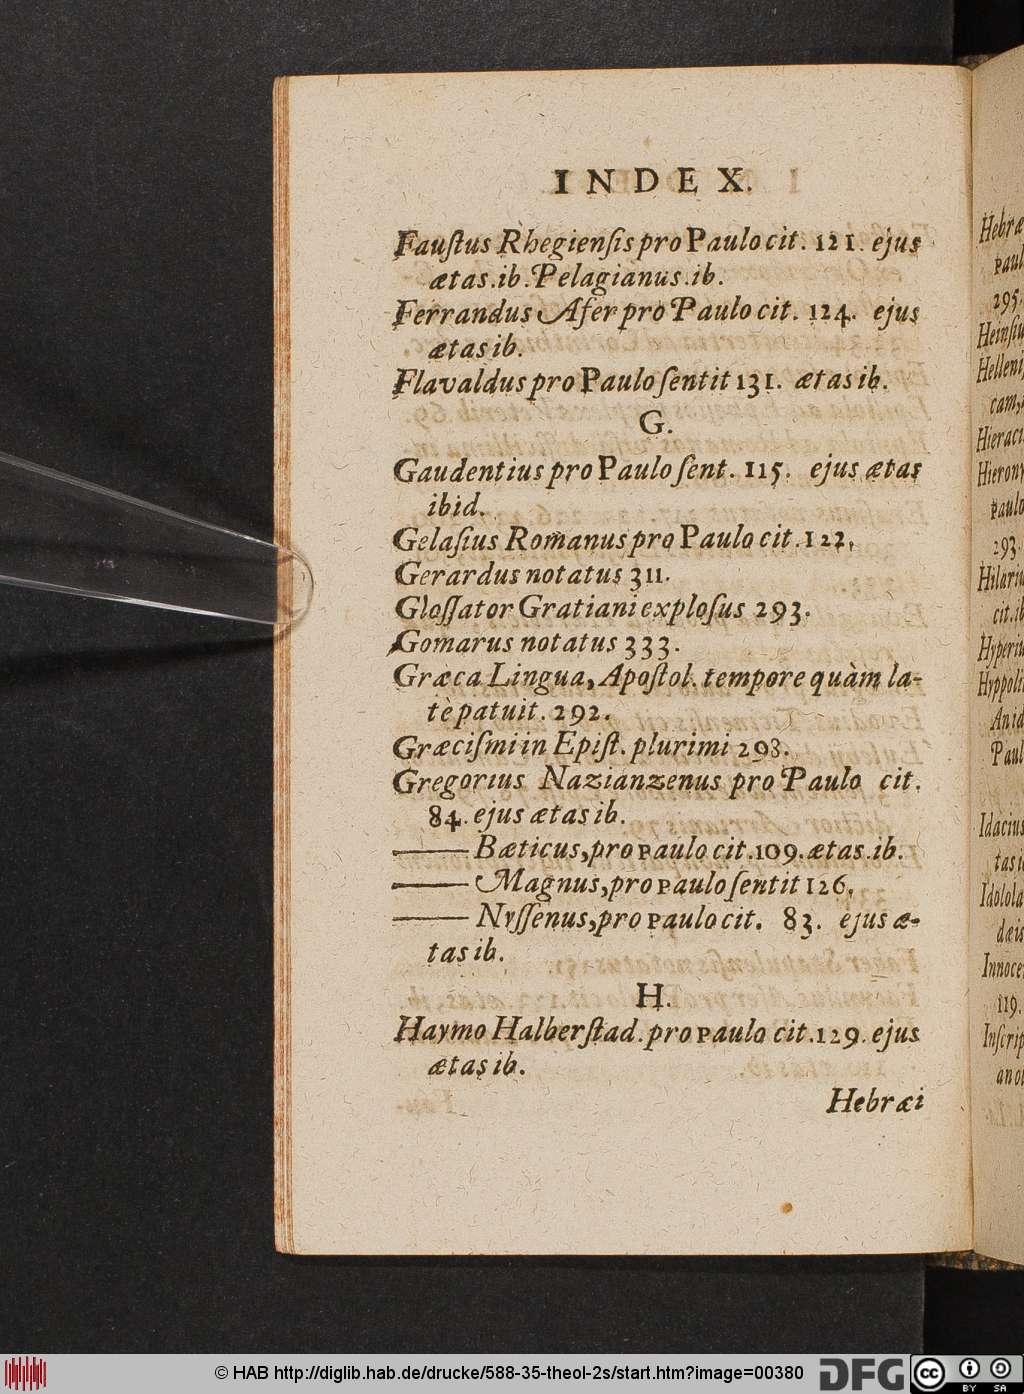 INDEX.
Fauſtus Rhegienſis pro Paulo cit. 121. ejus
ætas. ib. Pelagianus. ib.
Ferrandus Afer pro Paulo cit. 124. ejus
ætas ib.
Flavaldus pro Paulo ſentit 131. ætas ib.
G.
Gaudentius pro Paulo ſent. 115. ejus ætas
ibid.
Gelaſius Romanus pro Paulo cit. 122.
Gerardus notatus 311.
Gloſſator Gratiani exploſus 293.
Gomarus notatus 333.
Græca Lingua, Apoſtol. tempore quàm la-
tè patuit. 292.
Græciſmi in Epiſt. plurimi 298.
Gregorius Nazianzenus pro Paulo cit.
84. ejus ætas ib.
——— Bæticus, pro Paulo cit. 109. ætas. ib.
——— Magnus, pro Paulo ſentit 126.
——— Nyſſenus, pro Paulo cit. 83. ejus æ-
tas ib.
H.
Haymo Halberſtad. pro Paulo cit. 129. ejus
ætas ib.
Hebræi
Hebræ
Paul
295.
Heinſiu
Helleni
cam,
Hieraci
Hierony
Paulo
293.
Hilariu
cit. ib
Hyperiu
Hyppoli
Anid
Paul
Idacius
tas i
Idolola
dæis
Innoce
119.
Inſcrip
an ot
© HAB http://diglib.hab.de/drucke/588-35-theol-2s/start.htm?image=00380
DFG
cc BY SA